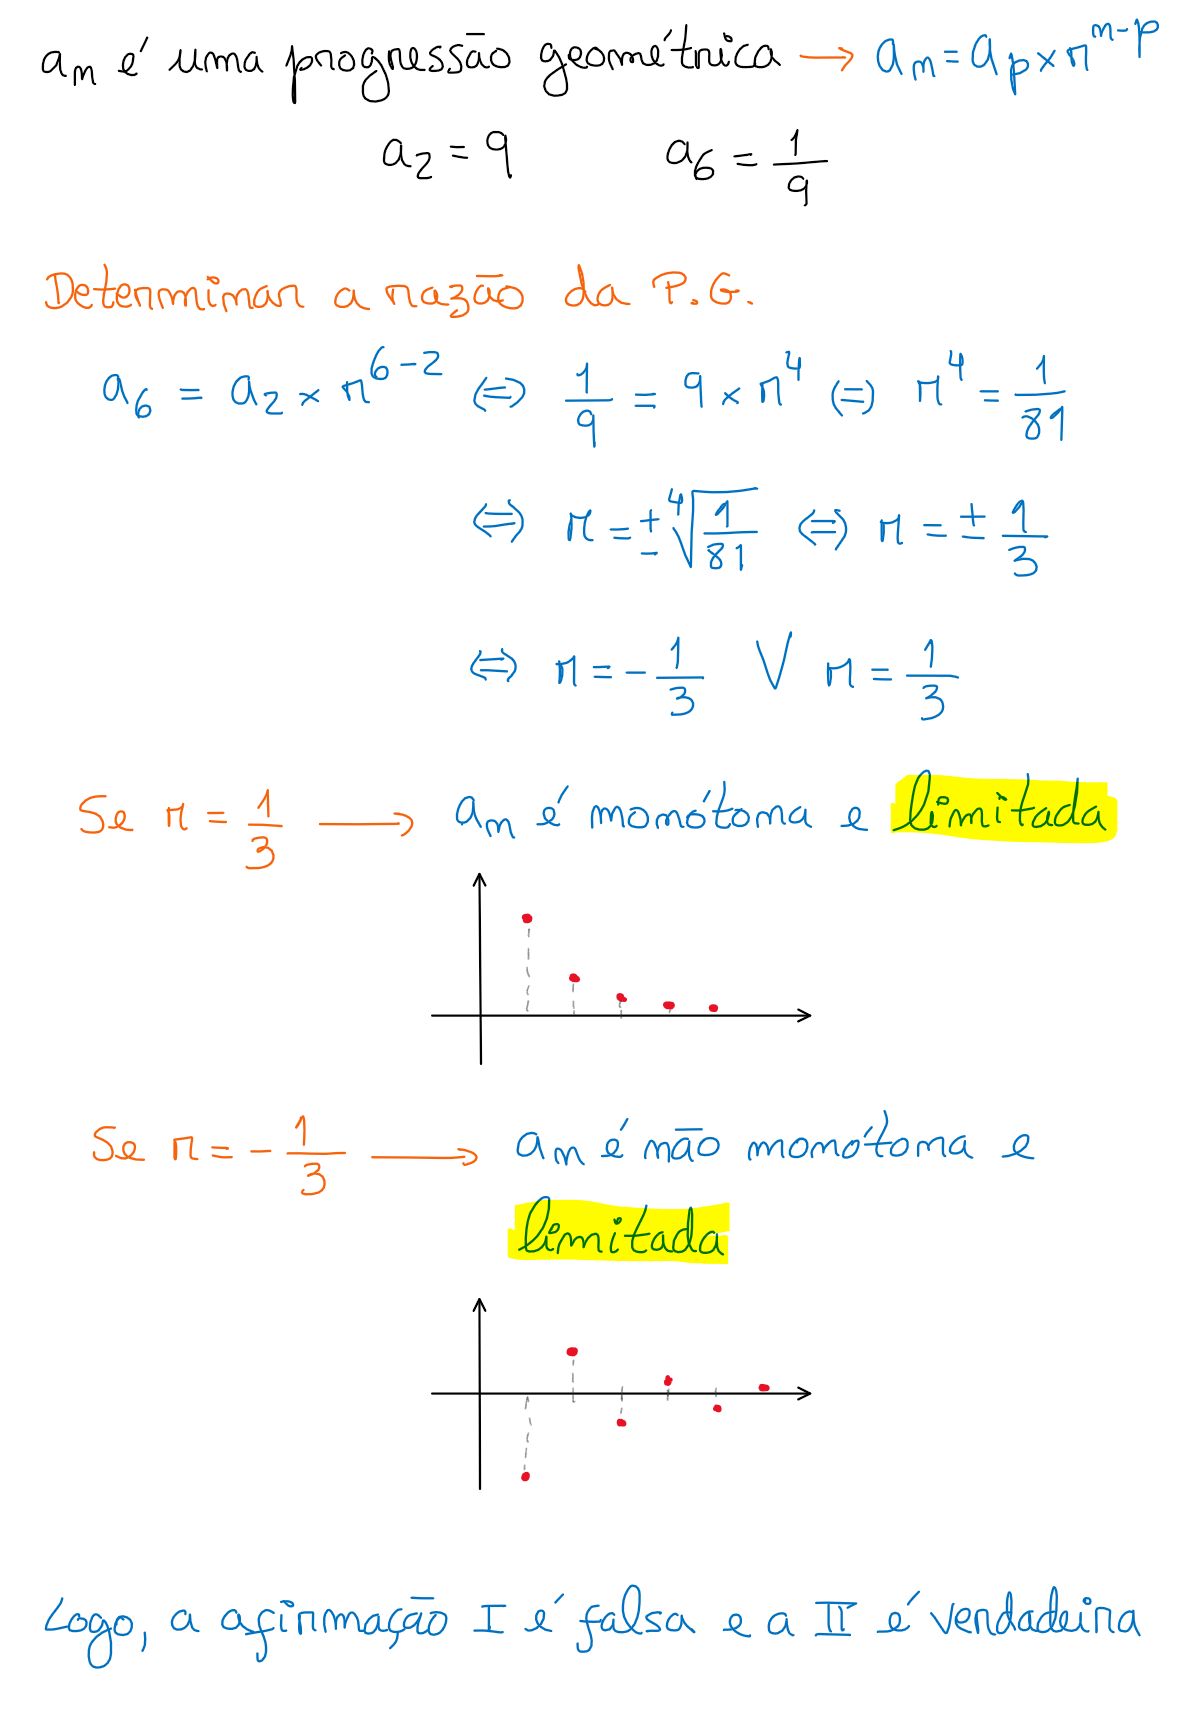 aₙ é uma progressão geométrica → aₙ = aₚ × r^(n-p)
a₂ = 9 a₆ = 1/9
Determinar a razão da P.G.
a₆ = a₂ × r^(6-2) ⇔ 1/9 = 9 × r⁴ ⇔ r⁴ = 1/81
⇔ r = ± ⁴√(1/81) ⇔ r = ± 1/3
⇔ r = - 1/3 V r = 1/3
Se r = 1/3 → aₙ é monótona e limitada
Se r = - 1/3 → aₙ é não monótona e
limitada
Logo, a afirmação I é falsa e a II é verdadeira